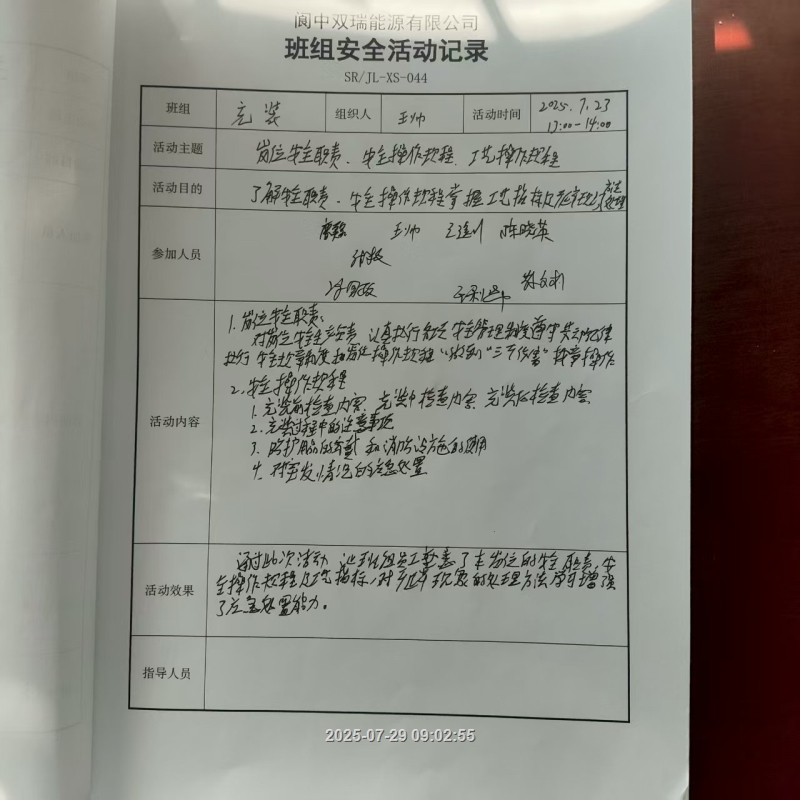 阆中双瑞能源有限公司
班组安全活动记录
SR/JL-XS-044
班组 充装 组织人 王帅 活动时间 2025.7.23
13:00-14:00
活动主题 岗位安全职责、安全操作规程、工艺操作规程
活动目的 了解安全职责、安全操作规程掌握工艺指标及异常现象应急处理
参加人员 王帅 陈晓英
活动内容 1.岗位安全职责:
对岗位安全生产负责,认真执行各项安全管理制度遵守劳动纪律
执行安全规章制度和岗位操作规程,做到"三不伤害"按章操作
2.安全操作规程
1.充装前检查内容、充装中检查内容、充装后检查内容
2.充装过程中的注意事项
3.防护用品的穿戴和消防设施的使用
4.对突发情况的应急处置
活动效果 通过此次活动,让班组员工熟悉了本岗位的安全职责,安
全操作规程及工艺指标,对异常现象的处理方法学习增强
了应急处置能力。
指导人员
2025-07-29 09:02:55